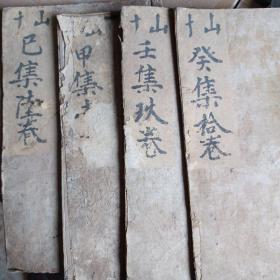 山十
癸集拾卷
山十
壬集玖卷
甲集
山十
巳集陸卷